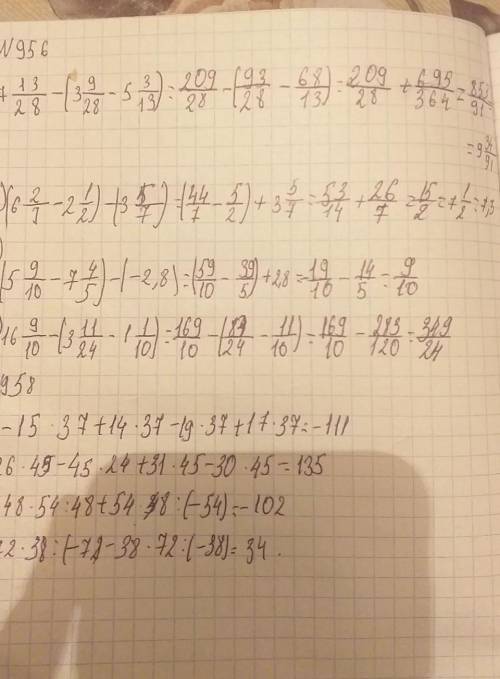 N956
7 13/28 - (3 9/28 - 5 3/13) = 209/28 - (93/28 - 68/13) = 209/28 + 695/364 = 853/91
= 9 34/91
(6 2/7 - 2 1/2) - (3 5/7) = (44/7 - 5/2) + 3 5/7 = 53/14 + 26/7 = 15/2 = 7 1/2 = 7,5
(5 9/10 - 7 4/5) - (-2,8) = (59/10 - 39/5) + 2,8 = 19/10 - 14/5 = 9/10
16 9/10 - (3 11/24 - 1 1/10) = 169/10 - (83/24 - 11/10) = 169/10 - 283/120 = 349/24
958
-15 · 37 + 14 · 37 - 19 · 37 + 17 · 37 = -111
26 · 45 - 45 · 24 + 31 · 45 - 30 · 45 = 135
48 · 54 : 48 + 54 · 48 : (-54) = -102
72 · 38 : (-72) - 38 · 72 : (-38) = 34 .